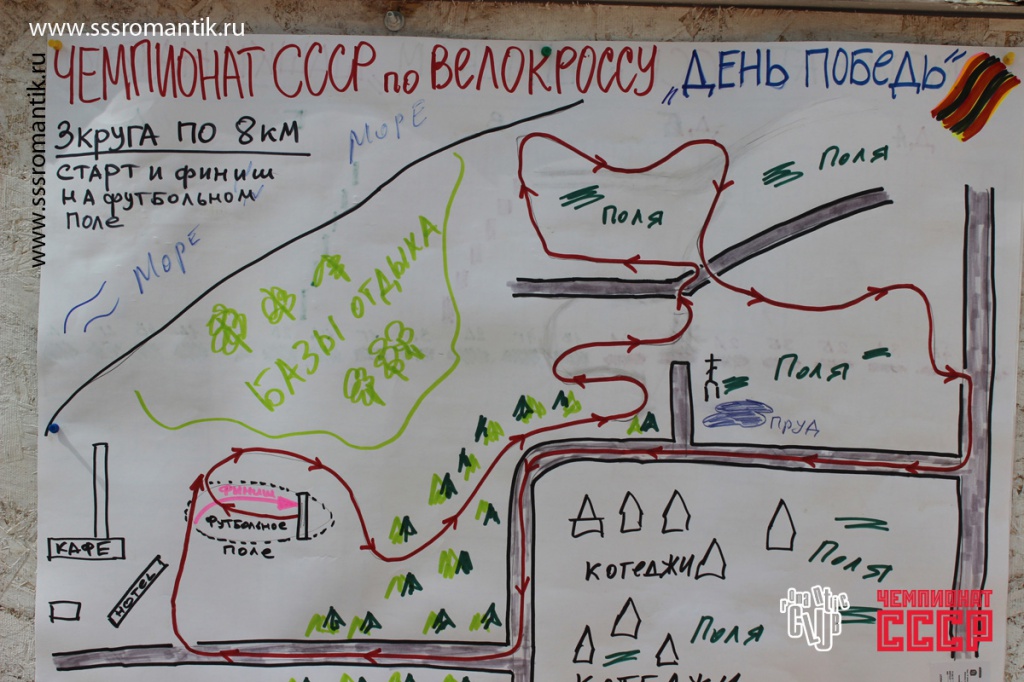 www.sssromantik.ru
www.sssromantik.ru
ЧЕМПИОНАТ СССР по ВЕЛОКРОССУ „ДЕНЬ ПОБЕДЬ“
3 КРУГА ПО 8 КМ
СТАРТ И ФИНИШ
НА ФУТБОЛЬНОМ
ПОЛЕ
МОРЕ
МОРЕ
БАЗЫ ОТДЫХА
ПОЛЯ
ПОЛЯ
ПОЛЯ
ПРУД
ФИНИШ
ФУТБОЛЬНОЕ
ПОЛЕ
КАФЕ
HOTEL
КОТЕДЖИ
ПОЛЯ
ПОЛЯ
КОТЕДЖИ
romantic
CLUB
ЧЕМПИОНАТ
СССР